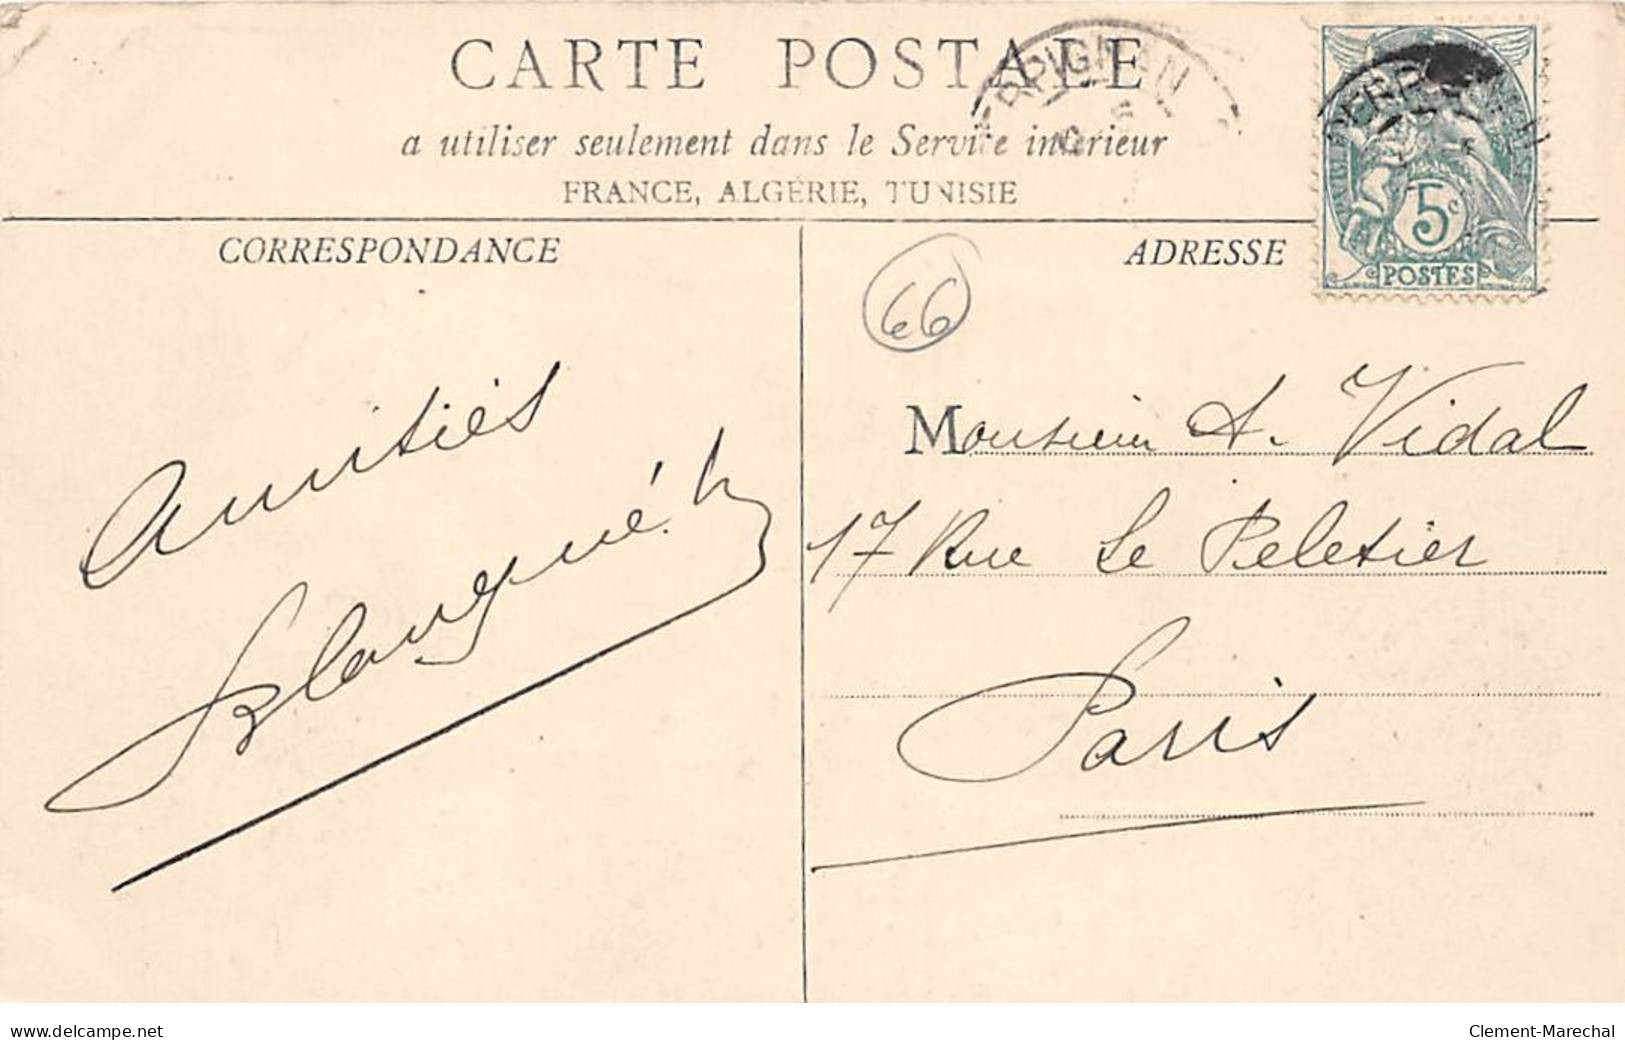 CARTE POSTALE
a utiliser seulement dans le Service intérieur
FRANCE, ALGÉRIE, TUNISIE
PERPIGNAN
PERPIGNAN
5c
POSTES
CORRESPONDANCE
ADRESSE
66
Amitiés
Monsieur A. Vidal
17 Rue Le Peletier
Paris
www.delcampe.net
Clement-Marechal